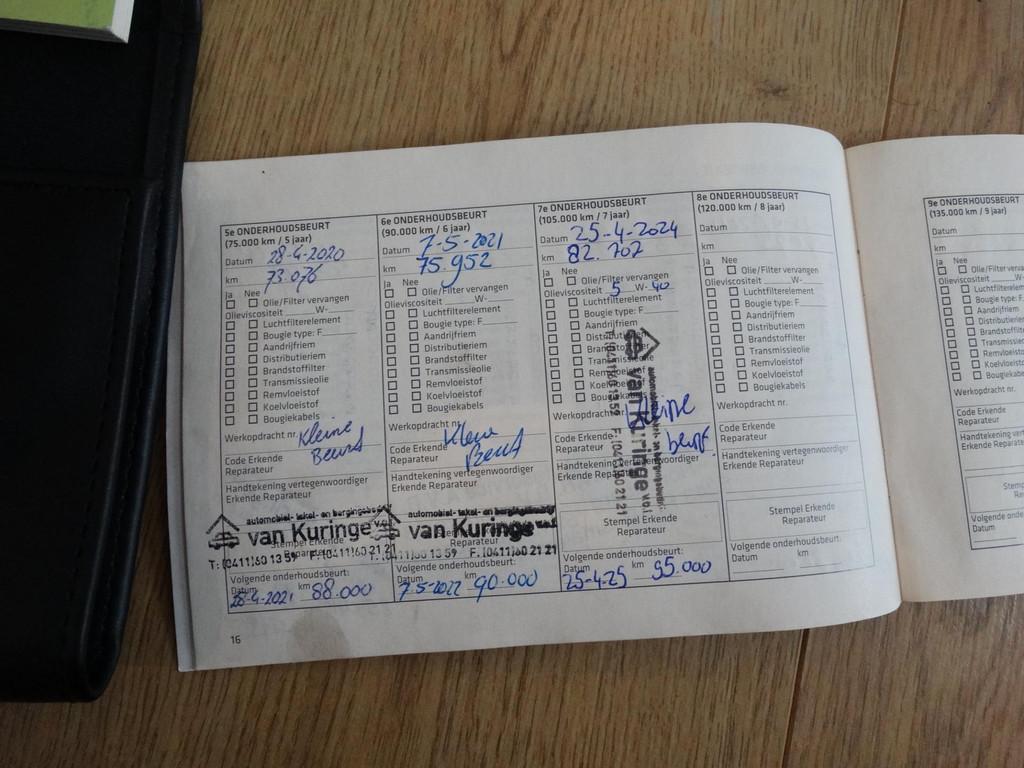 5e ONDERHOUDSBEURT
(75.000 km / 5 jaar)
Datum 28-4-2020
km 73.076
Ja Nee
Olie/Filter vervangen
Olieviscositeit ____W-____
Luchtfilterelement
Bougie type: F____
Aandrijfriem
Distributieriem
Brandstoffilter
Transmissieolie
Remvloeistof
Koelvloeistof
Bougiekabels
Werkopdracht nr.
Kleine Beurt
Code Erkende
Reparateur
Handtekening vertegenwoordiger
Erkende Reparateur
automobiel- takel- en bergingsbedrijf
van Kuringe v.o.f.
Stempel Erkende
Reparateur
T: (0411)60 13 59 F: (0411)60 21 21
Volgende onderhoudsbeurt:
Datum km
28-4-2021 88.000
6e ONDERHOUDSBEURT
(90.000 km / 6 jaar)
Datum 7-5-2021
km 75.952
Ja Nee
Olie/Filter vervangen
Olieviscositeit ____W-____
Luchtfilterelement
Bougie type: F____
Aandrijfriem
Distributieriem
Brandstoffilter
Transmissieolie
Remvloeistof
Koelvloeistof
Bougiekabels
Werkopdracht nr.
Kleine Beurt
Code Erkende
Reparateur
Handtekening vertegenwoordiger
Erkende Reparateur
automobiel- takel- en bergingsbedrijf
van Kuringe v.o.f.
Reparateur
13 59 F. (0411)60 21 21
Volgende onderhoudsbeurt:
Datum km
7-5-2022 90.000
7e ONDERHOUDSBEURT
(105.000 km / 7 jaar)
Datum 25-4-2024
km 82.702
Ja Nee
Olie/Filter vervangen
Olieviscositeit 5 W-40
Luchtfilterelement
Bougie type: F____
Aandrijfriem
Distributieriem
Brandstoffilter
Transmissieolie
Remvloeistof
Koelvloeistof
Bougiekabels
Werkopdracht nr.
Kleine beurt
Code Erkende
Reparateur
Handtekening vertegenwoordiger
Erkende Reparateur
van Kuringe v.o.f.
Stempel Erkende
Reparateur
Volgende onderhoudsbeurt:
Datum km
25-4-25 95.000
8e ONDERHOUDSBEURT
(120.000 km / 8 jaar)
Datum
km
Ja Nee
Olie/Filter vervangen
Olieviscositeit ____W-____
Luchtfilterelement
Bougie type: F____
Aandrijfriem
Distributieriem
Brandstoffilter
Transmissieolie
Remvloeistof
Koelvloeistof
Bougiekabels
Werkopdracht nr.
Code Erkende
Reparateur
Handtekening vertegenwoordiger
Erkende Reparateur
Stempel Erkende
Reparateur
Volgende onderhoudsbeurt:
Datum km
16
9e ONDERHOUDSBEURT
(135.000 km / 9 jaar)
Datum
km
Ja Nee
Olie/Filter
Olieviscositeit
Luchtfilterelement
Bougie type: F
Aandrijfriem
Distributieriem
Brandstoffilter
Transmissieolie
Remvloeistof
Koelvloeistof
Bougiekabels
Werkopdracht nr.
Code Erkende
Reparateur
Handtekening
Erkende Reparateur
Volgende
Datum